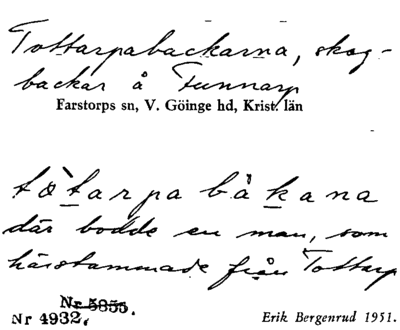 Tottarpabackarna, skog-
backar å Funnarp
Farstorps sn, V. Göinge hd, Krist. län
tòtarpa bàkana
där bodde en man, som
härstammade från Tottarp
Nr 5855.
Nr 4932.
Erik Bergenrud 1951.